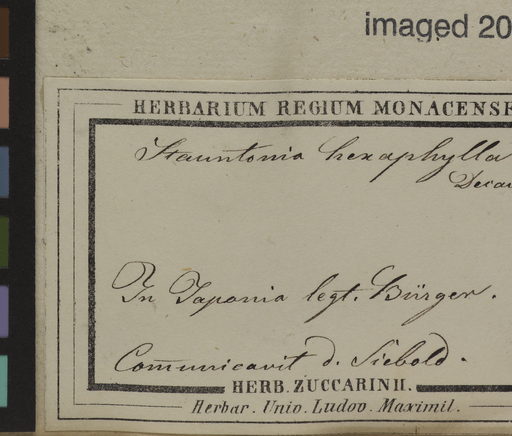 imaged 20
HERBARIUM REGIUM MONACENSE
Stauntonia hexaphylla
Decai
In Japonia legt. Bürger.
Com̄unicavit d. Siebold.
HERB. ZUCCARINII.
Herbar. Univ. Ludov. Maximil.